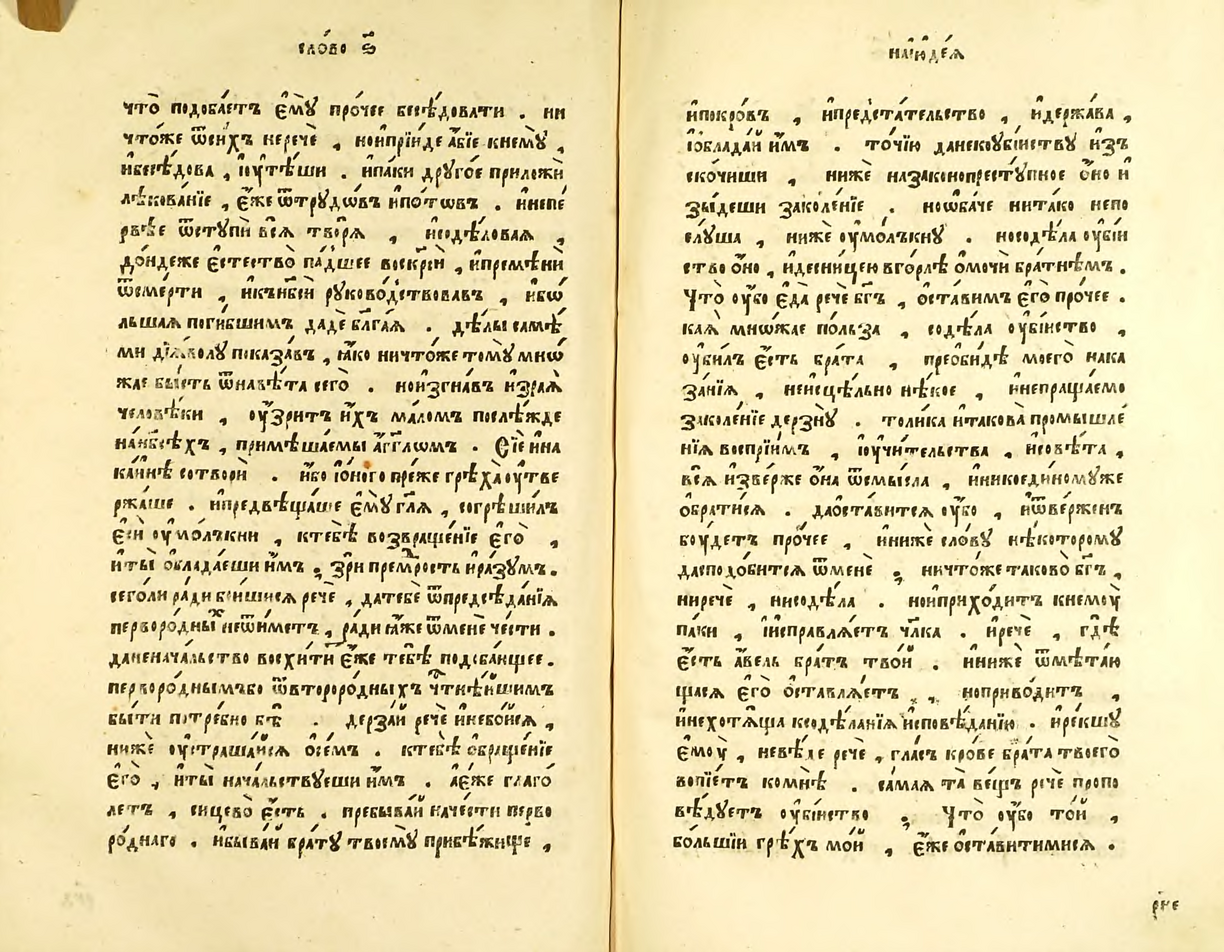 сло́во ѕ҃
что̀ подоба́етъ є҆мꙋ̀ про́чее бесѣ́довати . ни
что́же ѿси́хъ неречѐ , нои҆прїи́де а҆́бїе кнемꙋ̀ ,
и҆бесѣ́дова , и҆ᲂу҆тѣ́ши . и҆па́ки дрꙋго́е приложѝ
лѣкова́нїе , є҆́же ѿтрꙋдо́въ и҆по́товъ . и҆непе
рвѣ́е ѿстꙋпѝ всѧ̀ творѧ̀ , исодѣ́ловаѧ ,
до́ндеже є҆стество̀ па́дшее воскрⷭ҇ѝ , и҆премѣнѝ
ѿсме́рти , и҆кънб҃сѝ рꙋково́дствовавъ , и҆бѡ́
льшаѧ поги́бшимъ дадѐ бл҃га́ѧ . дѣ́лы самѣ́
ми дїа́волꙋ показа́въ , ꙗ҆́ко ничто́же томꙋ̀ мнѡ́
жае бы́сть ѿнавѣ́та сего̀ . нои҆згна́въ и҆зраѧ̀
человѣ́ки , ᲂу҆́зритъ и҆́хъ ма́ломъ послѣ́жде
нан҃бсѣ́хъ , примѣша́емы а҆́гг҃лѡмъ . Сїе́ и҆на
ка́инѣ сотворѝ . и҆́бо ю҆́ного пре́же грѣха̀ ᲂу҆тве
ржа́ше . и҆предвѣща́ше є҆мꙋ̀ гл҃ѧ , согрѣши́лъ
є҆сѝ ᲂу҆мо́лъкни , ктебѣ̀ возвраще́нїе є҆го̀ ,
и҆ты̀ ѡ҆блада́еши и҆́мъ ; зрѝ премⷣрость и҆ра́зꙋмъ .
сего́ли ради боиши́сѧ речѐ , датебѐ ѿпредсѣда́нїѧ
первородны́ⷯ неѿи́метъ , ра́ди ꙗ҆́же ѿменѐ че́сти .
даненача́льство восхи́тит є҆́же тебѣ̀ подоба́ющее .
перворо́днымъбо ѿвторородны́хъ чⷭ҇тнѣ́йшимъ
бы́ти потре́бно бѣ̀ . дерза́й речѐ и҆небо́йсѧ ,
нижѐ ᲂу҆страша́йсѧ ѻ҆се́мъ . ктебѣ̀ ѻ҆браще́нїе
є҆го̀ , и҆ты̀ нача́льствꙋеши и҆́мъ . ає҆́же глаго́
летъ , сицево̀ є҆́сть . пребыва́й начести перво
ро́днаго . и҆быва́й бра́тꙋ твоемꙋ̀ прибѣ́жище ,
наїю҆де́ѧ
и҆покро́въ , и҆предста́тельство , и҆держа́ва ,
ї҆ѻ҆блада́й и҆́мъ . то́чїю данекоубі́йствꙋ и҆зъ
ско́чиши , нижѐ назаконопрестꙋ́пное ѻ҆́но и҆
зы́деши заколе́нїе . ноѻ҆ба́че нита́ко непо
слꙋ́ша , нижѐ ᲂу҆мо́лъкнꙋ . носодѣ́ла ᲂу҆бі́й
ство ѻ҆́но , и҆десни́цею вго́рлѣ ѻ҆мочѝ бра́тнѣмъ .
Что̀ ᲂу҆́бо є҆да̀ речѐ бг҃ъ , ѻ҆ста́вимъ є҆го̀ про́чее .
ка́ѧ мнѡ́жае по́льза , содѣ́ла ᲂу҆бі́йство ,
ᲂу҆би́лъ є҆́сть бра́та , преѻ҆би́дѣ моего̀ нака
за́нїѧ , неисцѣ́льно нѣ́кое , и҆непраща́емо
заколе́нїе дерзнꙋ̀ . то́лика и҆такова̀ промышле́
нїѧ воспрїи́мъ , ї҆ᲂу҆чи́тельства , и҆совѣ́та ,
всѧ̀ и҆зве́рже ѻ҆на̀ ѿсмы́сла , и҆никоеди́номꙋже
ѻ҆брати́сѧ . даѻ҆ста́витсѧ ᲂу҆́бо , и҆ѿве́рженъ
бꙋ́детъ про́чее , и҆нижѐ сло́вꙋ нѣ́которомꙋ
даспо́добитсѧ ѿменѐ ; ничто́же таково̀ бг҃ъ ,
ниречѐ , нисодѣ́ла . нои҆прихо́дитъ кнемꙋ̀
па́ки , ї҆исправлѧ́етъ чл҃ка . и҆речѐ , гдѣ̀
є҆́сть а҆́вель бра́тъ тво́й . и҆нижѐ ѿмѣта́ю
щасѧ є҆го̀ ѻ҆ставлѧ́етъ , , нопривóдитъ ,
и҆нехотѧ́ща ксодѣ́ланїѧ и҆сповѣ́данїю . и҆ре́кшꙋ
є҆мꙋ̀ , невѣ́де речѐ , гла́съ кро́ве бра́та твоего̀
вопїе́тъ комнѣ̀ . са́маѧ та̀ ве́щь речѐ пропо
вѣ́дꙋетъ ᲂу҆бі́йство ; Что̀ ᲂу҆́бо то́й ,
бо́льшїи грѣ́хъ мо́й , є҆́же ѻ҆ста́витимисѧ .
рн҃е